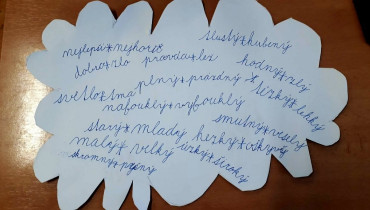 tlustý x hubený
nejlepší x nejhorší
dobro x zlo pravda x lež
hodný x zlý
světlo x tma plný x prázdný
těžký x lehký
nafouklý x vyfouklý
smutný x veselý
starý x mladý hezký x ošklivý
malý x velký úzký x široký
skromný x pyšný